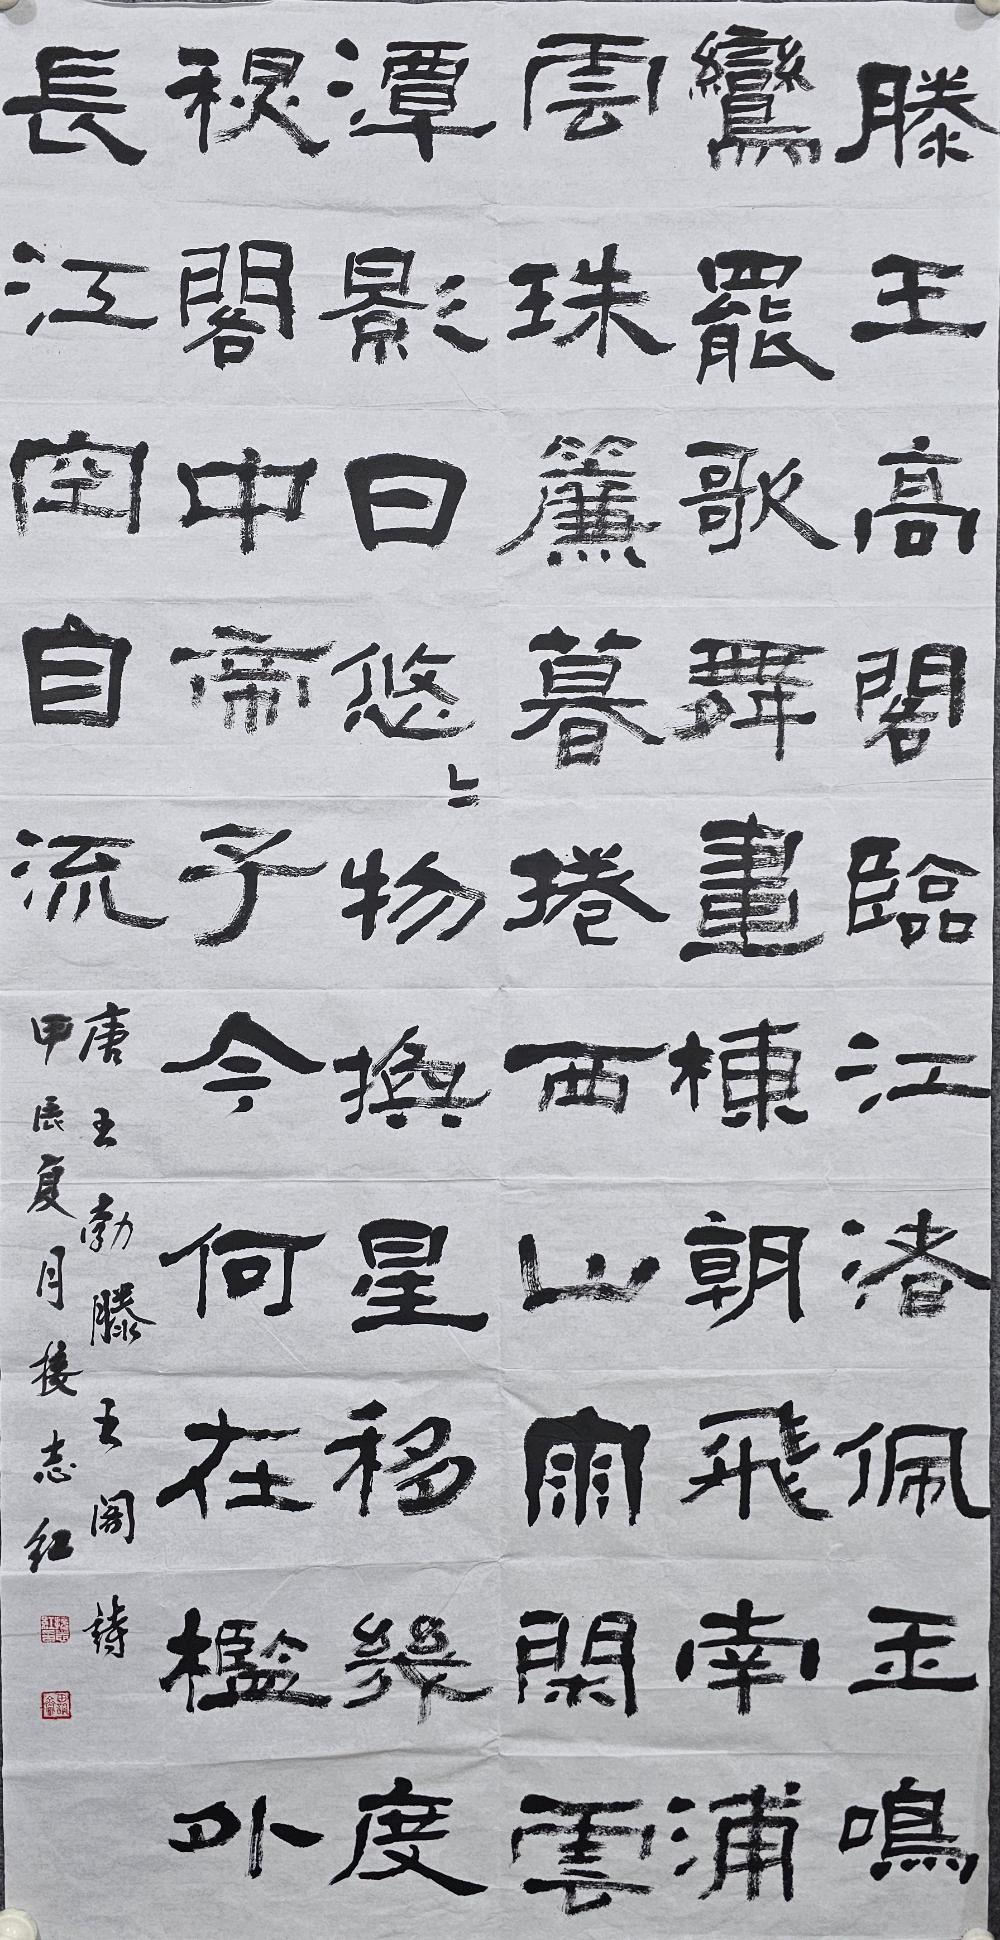 滕王高閣臨江渚佩玉鳴
鸞罷歌舞畫棟朝飛南浦
雲珠簾暮捲西山雨閑雲
潭影日悠〻物換星移幾度
秋閣中帝子今何在檻外
長江空自流
唐王勃滕王阁詩
甲辰夏月楼志红